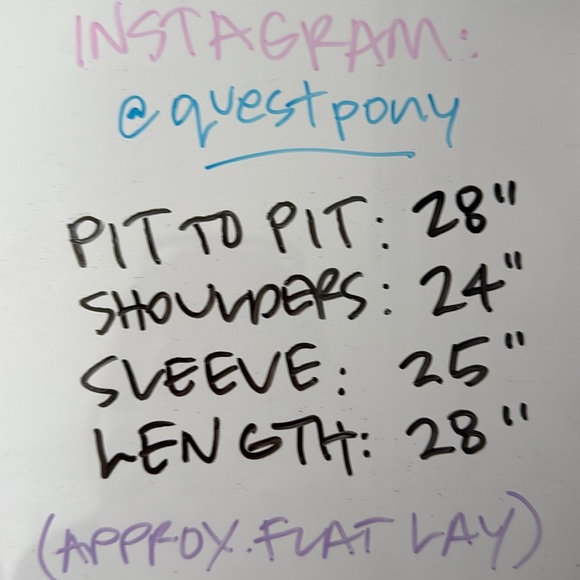 INSTAGRAM:
@questpony
PIT TO PIT: 28"
SHOULDERS: 24"
SLEEVE: 25"
LENGTH: 28"
(APPROX. FLAT LAY)